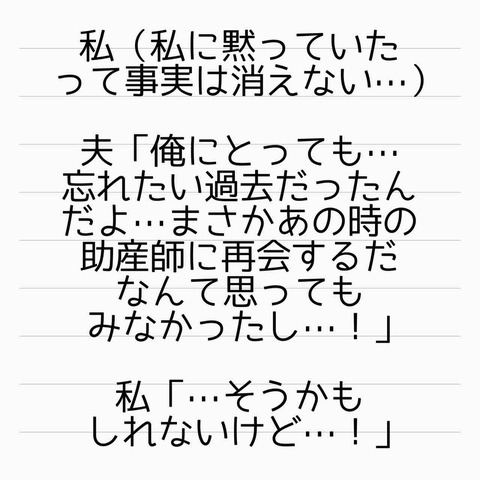 私（私に黙っていた
って事実は消えない…）
夫「俺にとっても…
忘れたい過去だったん
だよ…まさかあの時の
助産師に再会するだ
なんて思っても
みなかったし…！」
私「…そうかも
しれないけど…！」